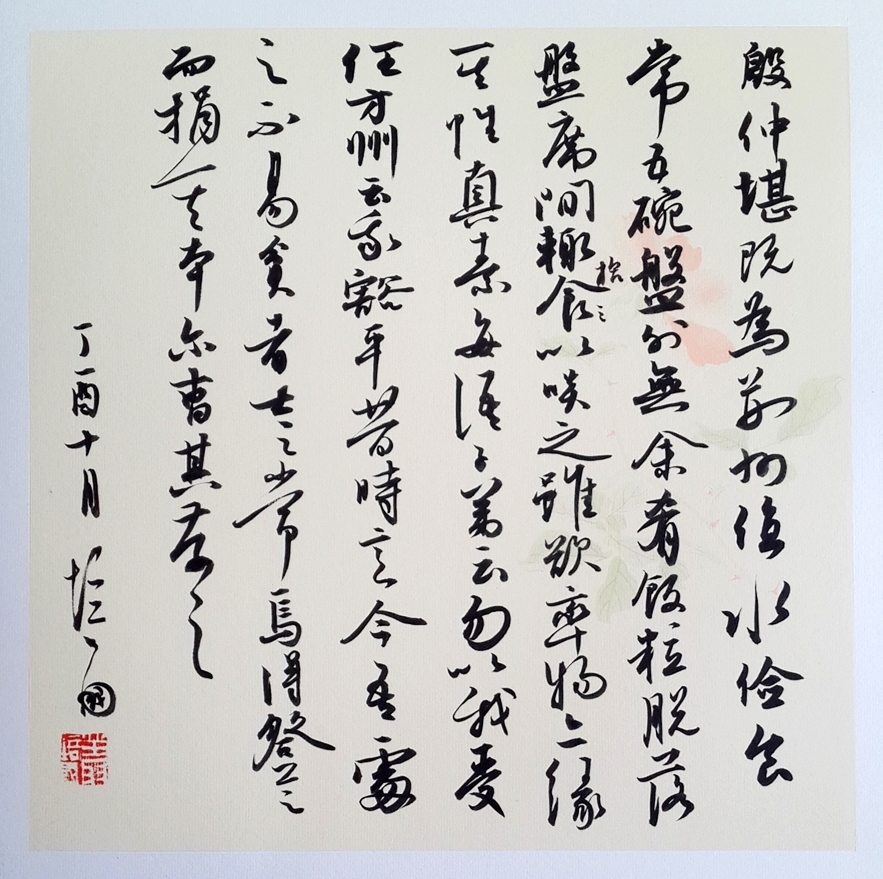 殷仲堪既為荊州值水儉食
常五碗盤外無余肴飯粒脫落
盤席間輒食以啖之雖欲率物亦緣
拾之
其性真素每語子弟云勿以我受
任方州云我豁平昔時意今吾處
之不易貧者士之常焉得登
而捐其本尔曹其存之
丁酉十月